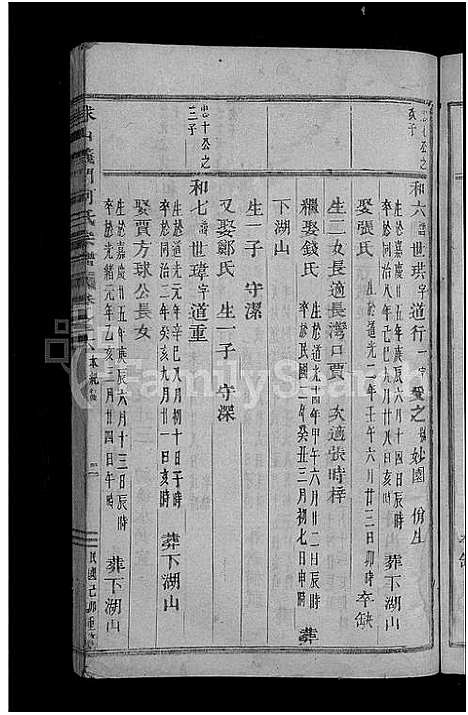 和六譜世珙字道行一字愛之號妙園 份生
生於嘉慶廿五年庚辰六月十四日辰時
卒於同治八年己巳九月廿八日亥時 葬下湖山
娶張氏 生於道光二年壬午六月廿三日卯時 卒缺
生二女長適長灣口賈 次適張時梓
繼娶錢氏 生於道光十四年甲午六月廿二日辰時
卒於民國二年癸丑三月初七日申時 葬
下湖山
生一子 守潔
又娶鄭氏 生一子 守深
忠十公之
三子
和七譜世璋字道重
生於道光元年辛巳八月初十日子時
卒於同治二年癸亥九月廿一日亥時 葬下湖山
娶賈方球公長女
生於嘉慶廿五年庚辰六月十三日辰時
卒於光緒元年乙亥三月廿四日午時 葬下湖山
民國己卯重
FamilySearch